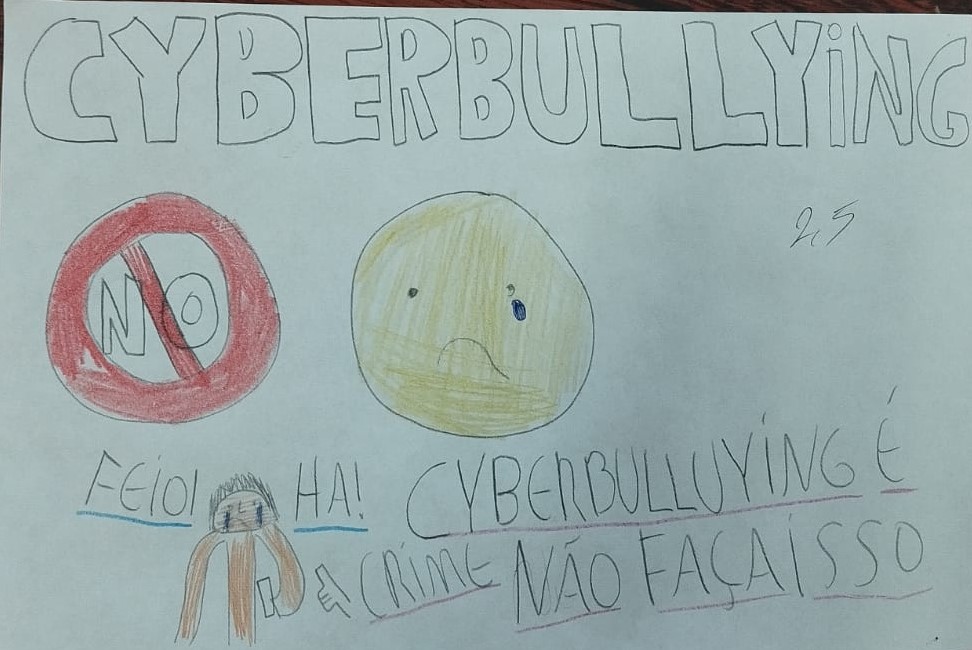 CYBERBULLYiNG
NO
2,5
FEIO! HA! CYBERBULLUYiNG É
CRiME NÃO FAÇA iSSO